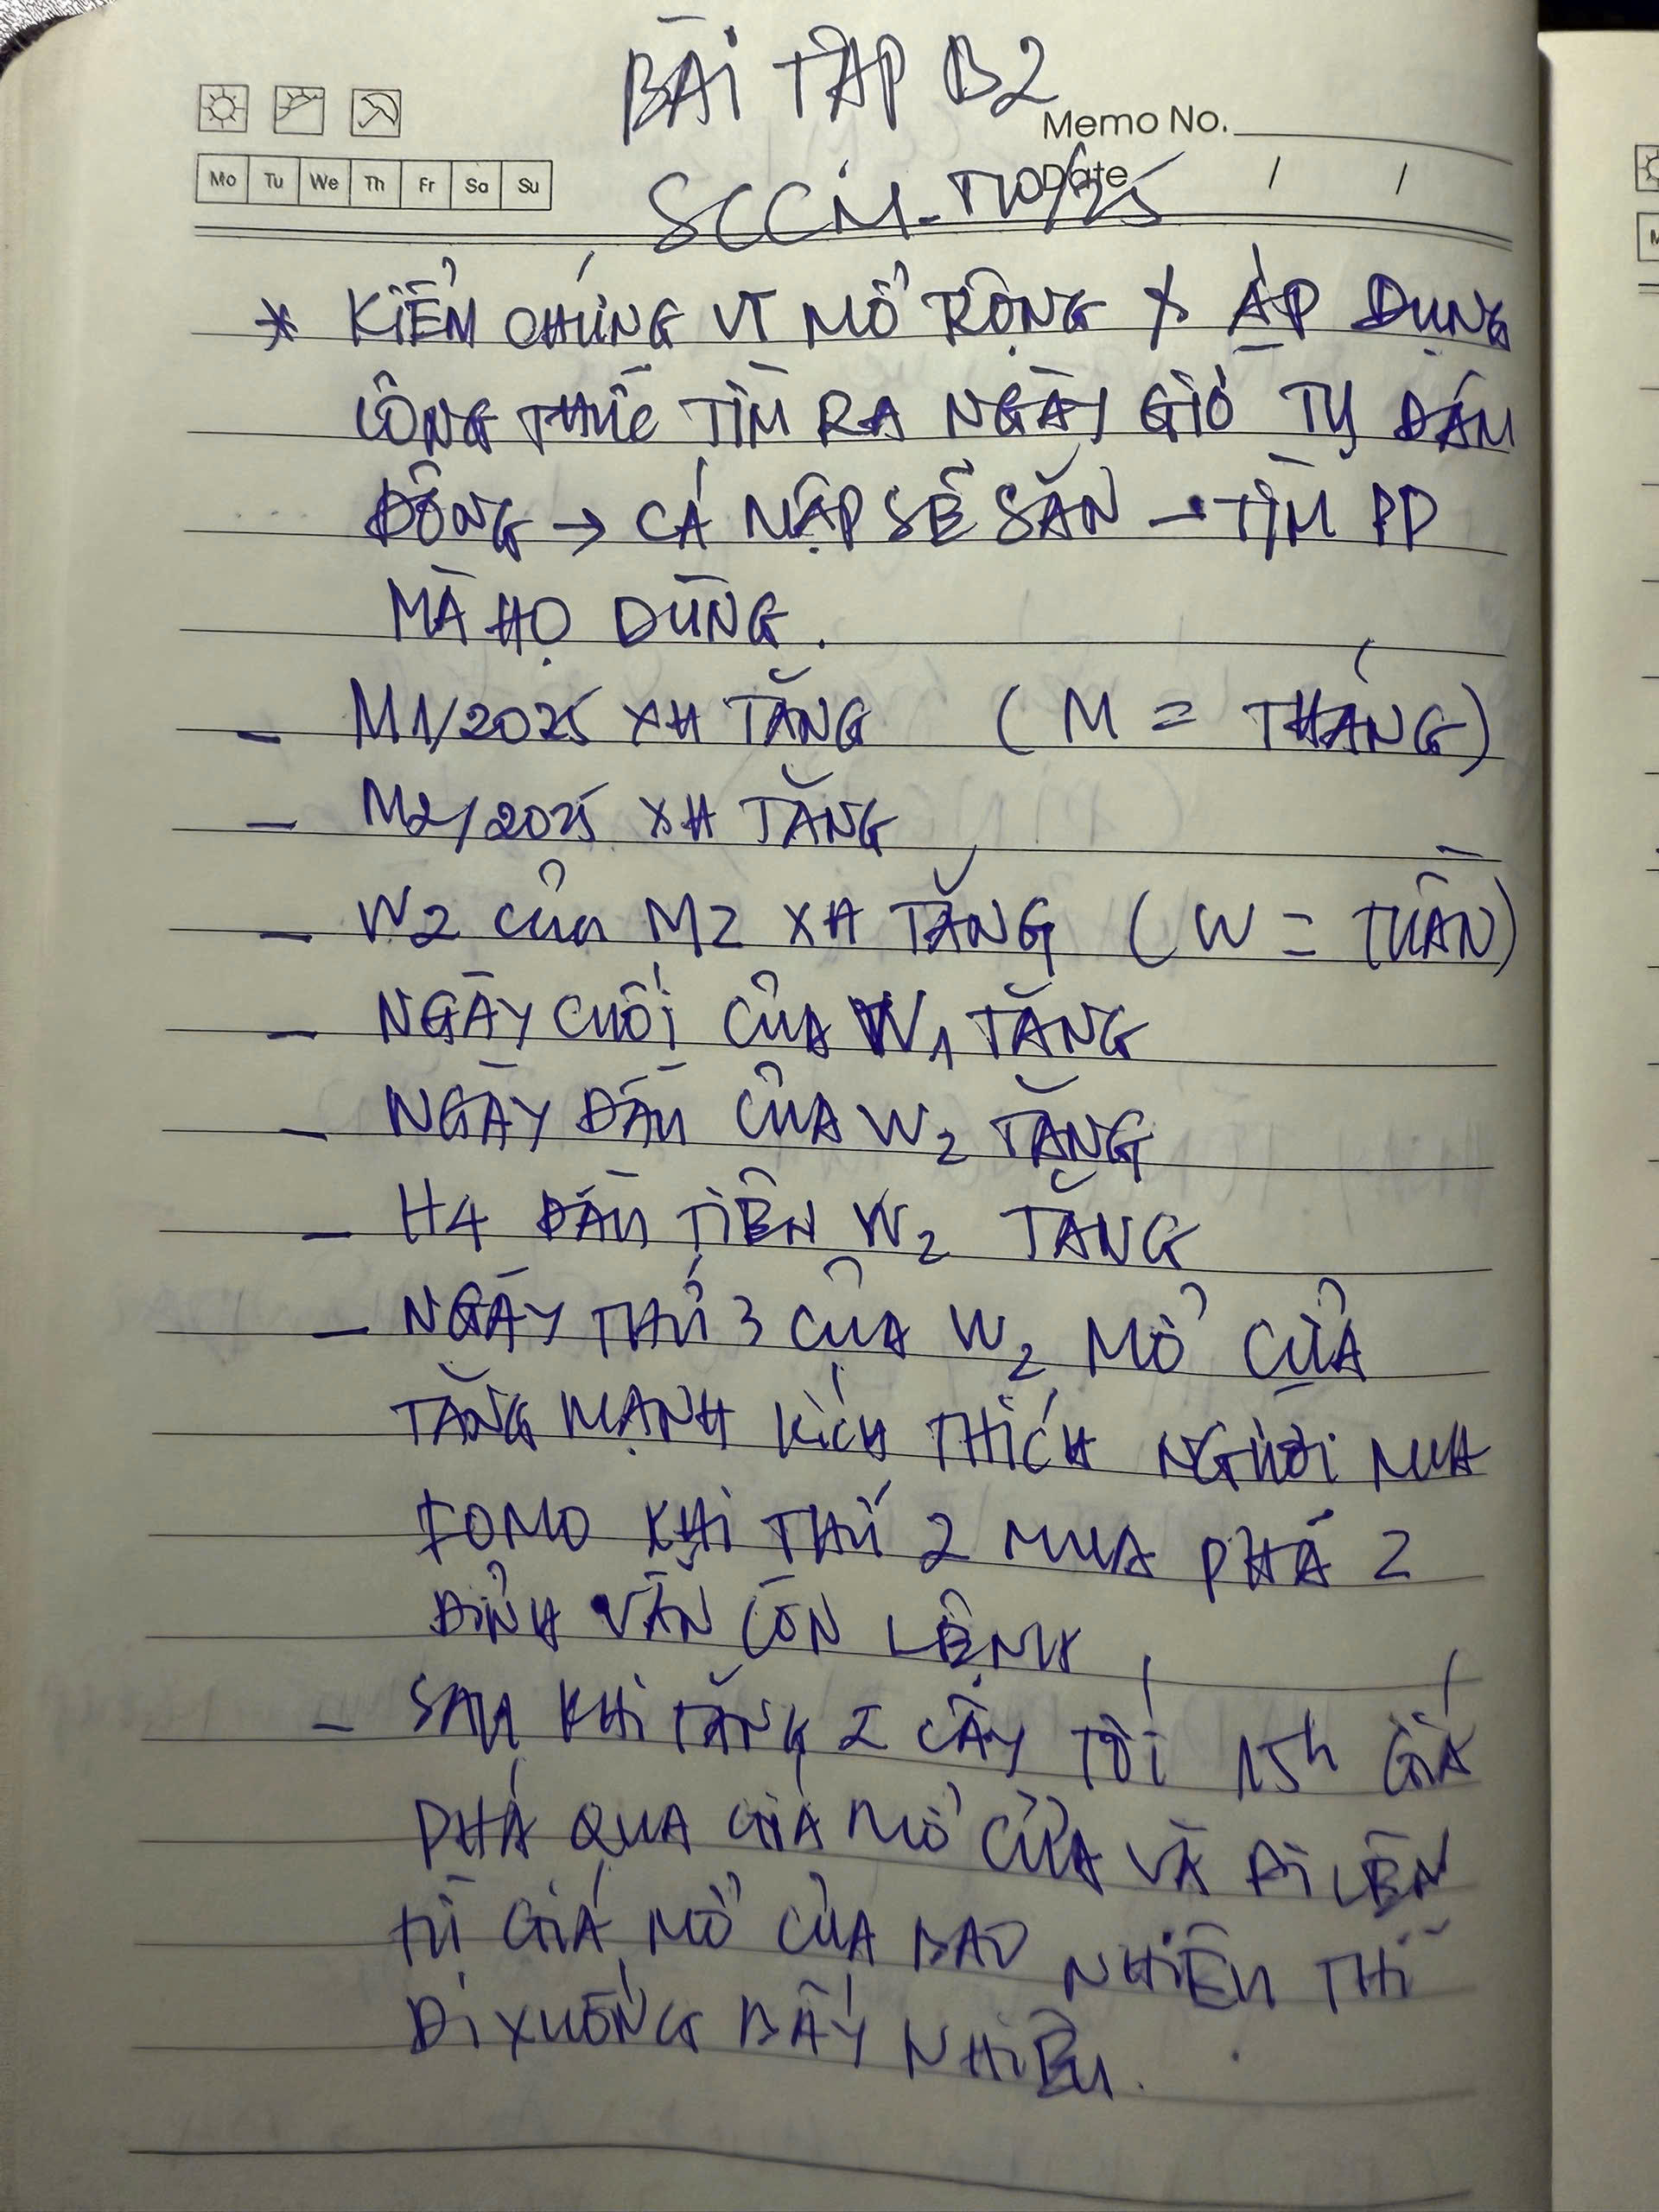 BÀI TẬP B2
Memo No.
Mo Tu We Th Fr Sa Su
Date / /
SCCIM-T10/25
* KIỂM CHỨNG VT MỞ RỘNG & ÁP DỤNG
CÔNG THỨC TÌM RA NGÀY GIỜ TỤ ĐÁM
ĐÔNG → CÁ MẬP SẼ SĂN → TÌM PP
MÀ HỌ DÙNG.
- M1/2025 XH TĂNG (M = THÁNG)
- M2/2025 XH TĂNG
- W2 của M2 XH TĂNG (W = TUẦN)
- NGÀY CUỐI CỦA W1 TĂNG
- NGÀY ĐẦU CỦA W2 TĂNG
- H4 ĐẦU TIÊN W2 TĂNG
- NGÀY THỨ 3 CỦA W2 MỞ CỬA
TĂNG MẠNH KÍCH THÍCH NGƯỜI MUA
FOMO KHI THỨ 2 MUA PHÁ 2
ĐỈNH VẪN CÒN LỆNH
- SAU KHI TĂNG 2 CÂY TỚI 15h GIÁ
PHÁ QUA GIÁ MỞ CỬA VÀ ĐI LÊN
TỪ GIÁ MỞ CỬA BAO NHIÊU THÌ
ĐI XUỐNG BẤY NHIÊU.